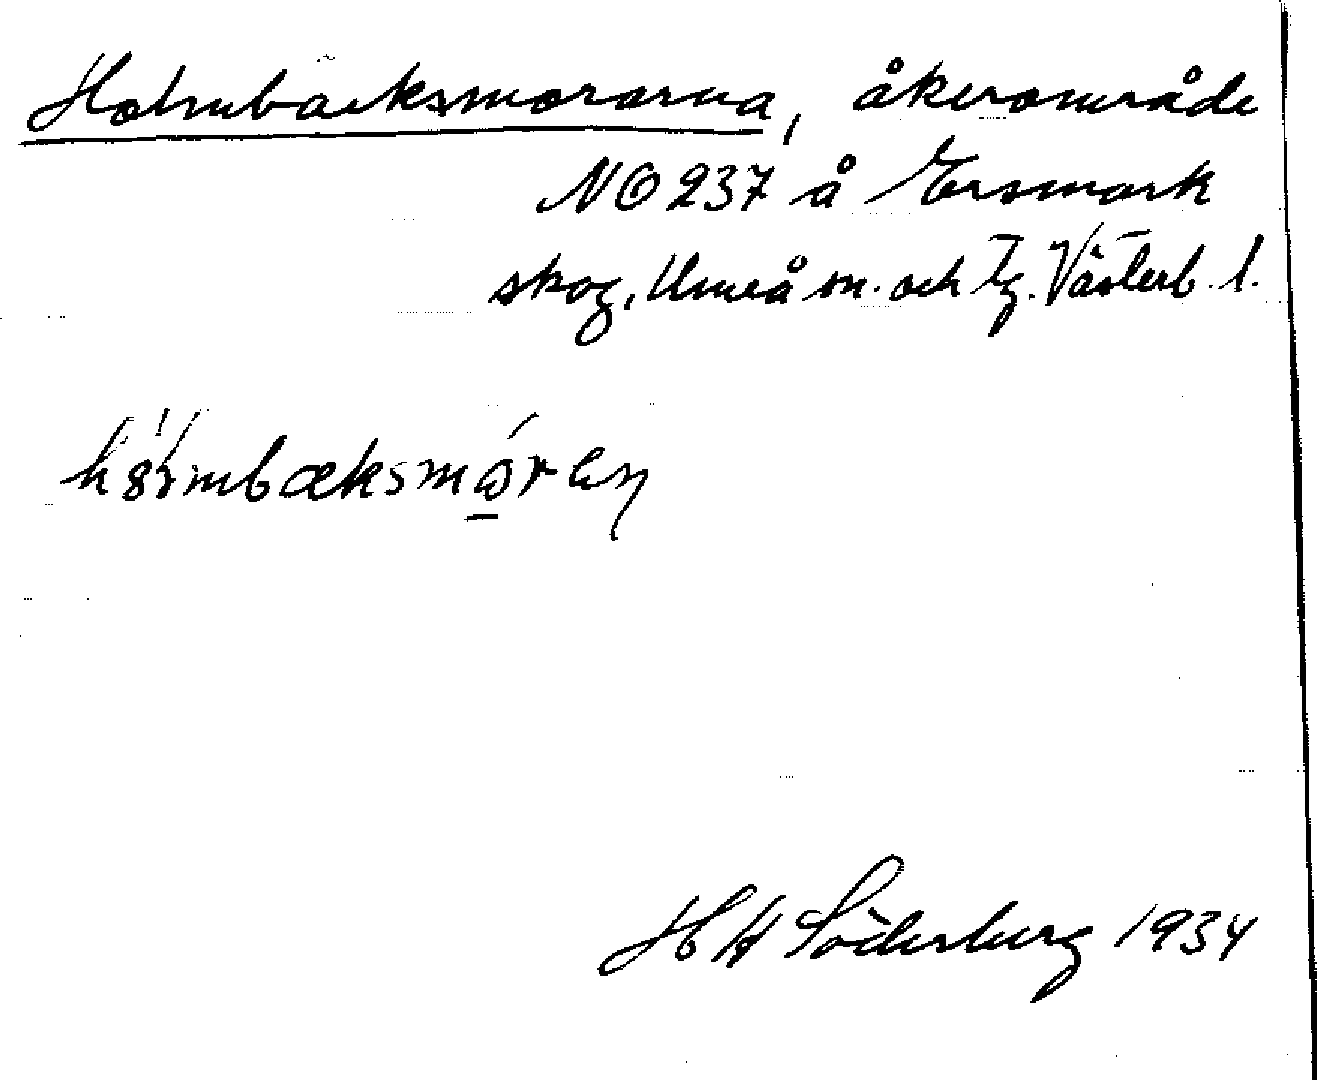 Holmbäcksmorarna, åkerområde
NO 237 å Ersmark
skog, Umeå sn. och Tg. Västerb. l.
H H Söderberg 1934